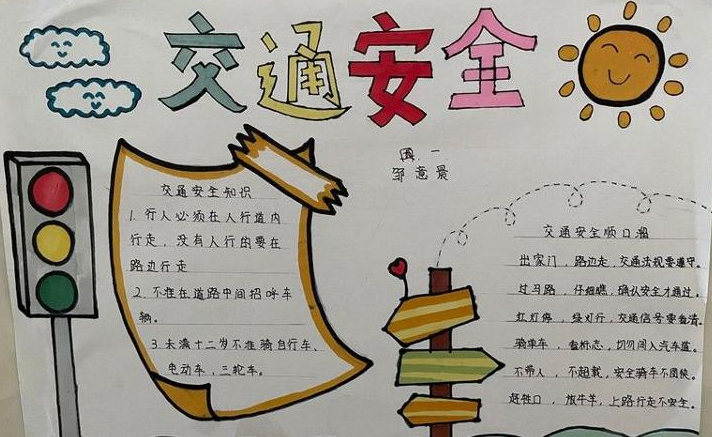 交通安全
一
邹意晨
交通安全知识
1. 行人必须在人行道内
行走，没有人行的要在
路边行走
2. 不准在道路中间招呼车
辆。
3. 未满十二岁不准骑自行车、
电动车，三轮车。
交通安全顺口溜
出家门，路边走，交通法规要遵守。
过马路，仔细瞧，确认安全才通过。
红灯停，绿灯行，交通信号要看清。
骑单车，看标志，切勿闯入汽车道。
不带人，不超载，安全骑车不图快。
赶牲口，放牛羊，上路行走不安全。